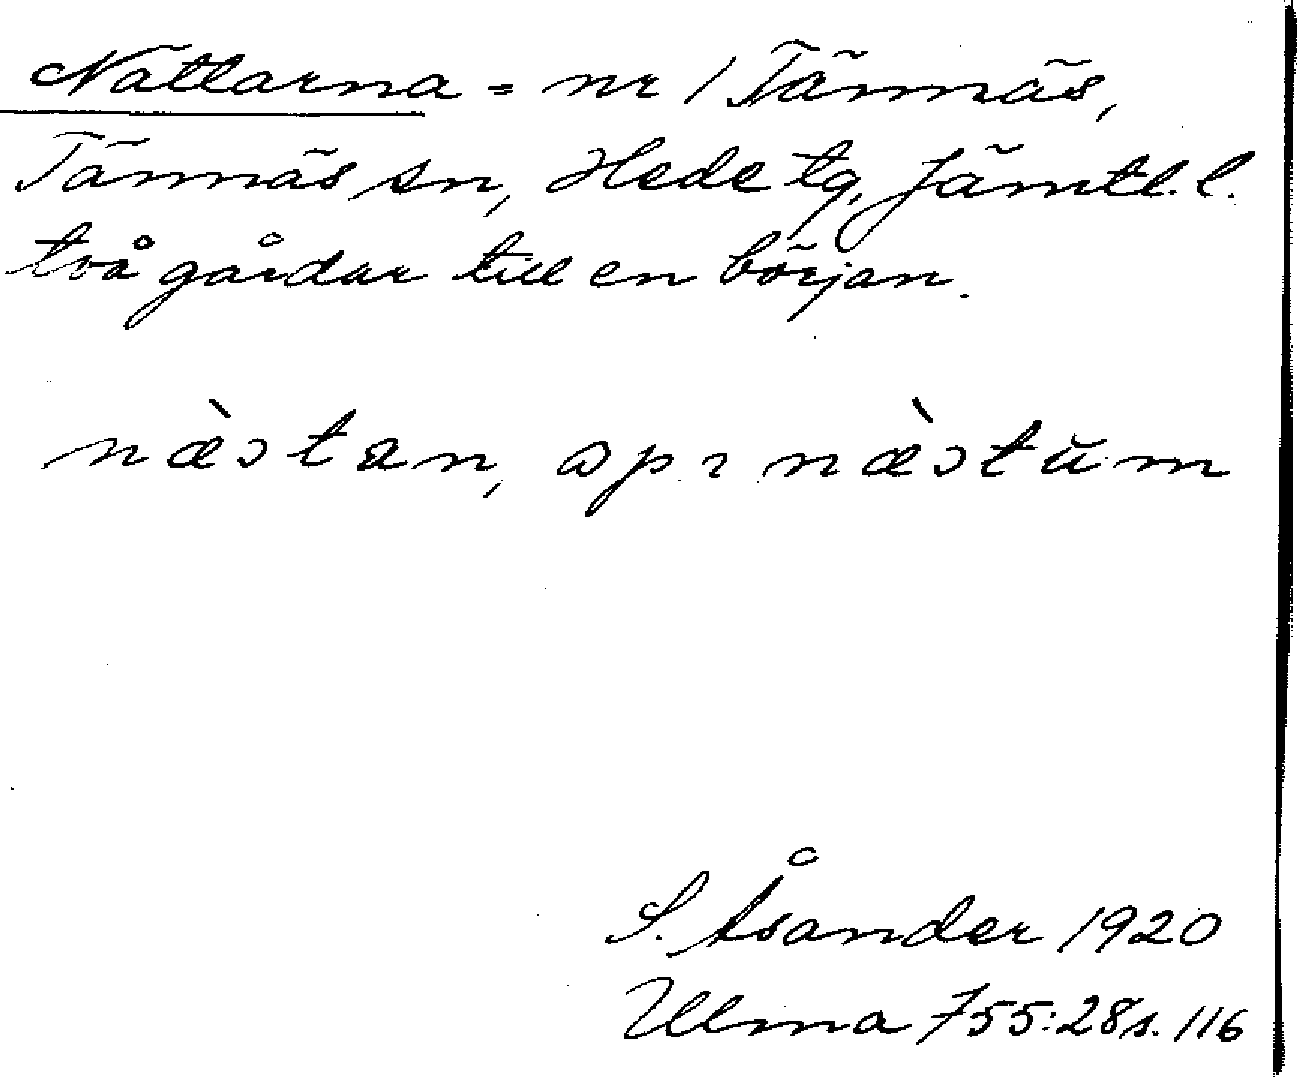 Nätlarna = nr 1 Tännäs,
Tännäs sn, Hede tg, Jämtl. l.
två gårdar till en början.
næ̀ɔtan, apɿ næ̀ɔtum
S. Åsander 1920
Ulma 755:28 s. 116